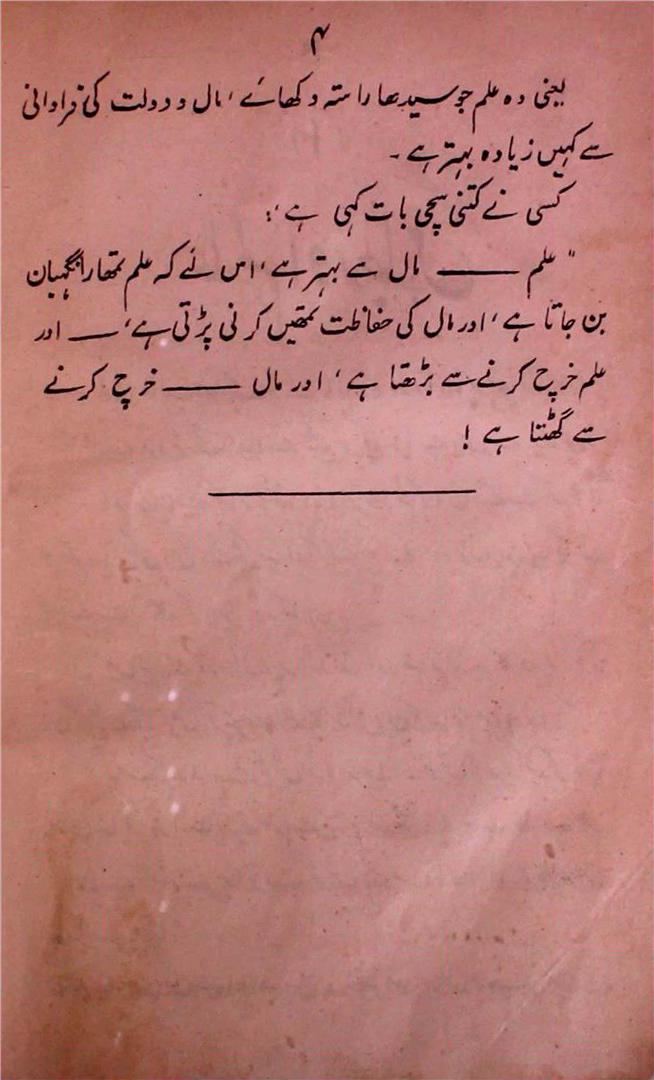 ۴
یعنی وہ علم جو سیدھا راستہ دکھائے، مال و دولت کی فراوانی
سے کہیں زیادہ بہتر ہے۔
کسی نے کتنی سچی بات کہی ہے:
"علم —— مال سے بہتر ہے، اس لئے کہ علم تمھارا نگہبان
بن جاتا ہے، اور مال کی حفاظت تمھیں کرنی پڑتی ہے، — اور
علم خرچ کرنے سے بڑھتا ہے، اور مال —— خرچ کرنے
سے گھٹتا ہے!